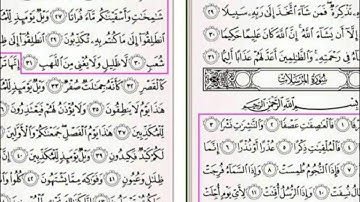 تَذْكِرَةٌ فَمَن شَآءَ ٱتَّخَذَ إِلَىٰ رَبِّهِۦ سَبِيلًا ٢٩
إِلَّآ أَن يَشَآءَ ٱللَّهُ إِنَّ ٱللَّهَ كَانَ عَلِيمًا حَكِيمًا ٣٠
فِى رَحْمَتِهِۦ وَٱلظَّٰلِمِينَ أَعَدَّ لَهُمْ عَذَابًا أَلِيمًا ٣١
سُورَةُ المُرْسَلَاتِ
بِسْمِ ٱللَّهِ ٱلرَّحْمَٰنِ ٱلرَّحِيمِ
فَٱلْعَٰصِفَٰتِ عَصْفًا ٢ وَٱلنَّٰشِرَٰتِ نَشْرًا ٣
فَٱلْمُلْقِيَٰتِ ذِكْرًا ٥ عُذْرًا أَوْ نُذْرًا ٦
فَإِذَا ٱلنُّجُومُ طُمِسَتْ ٨ وَإِذَا ٱلسَّمَآءُ فُرِجَتْ
نُسِفَتْ ١٠ وَإِذَا ٱلرُّسُلُ أُقِّتَتْ ١١ لِأَىِّ يَوْمٍ أُجِّلَتْ
شَٰمِخَٰتٍ وَأَسْقَيْنَٰكُم مَّآءً فُرَاتًا ٢٧
ٱنطَلِقُوٓا۟ إِلَىٰ مَا كُنتُم بِهِۦ تُكَذِّبُونَ ٢٩ ٱنطَلِقُوٓا۟
شُعَبٍ ٣٠ لَّا ظَلِيلٍ وَلَا يُغْنِى مِنَ ٱللَّهَبِ ٣١ إِنَّهَا
كَٱلْقَصْرِ ٣٢ كَأَنَّهُۥ جِمَٰلَتٌ صُفْرٌ ٣٣ وَيْلٌ يَوْمَئِذٍ
هَٰذَا يَوْمُ لَا يَنطِقُونَ ٣٥ وَلَا يُؤْذَنُ لَهُمْ فَيَعْتَذِرُونَ ٣٦
لِّلْمُكَذِّبِينَ ٣٧ هَٰذَا يَوْمُ ٱلْفَصْلِ جَمَعْنَٰكُمْ وَٱلْأَوَّلِينَ
لَكُمْ كَيْدٌ فَكِيدُونِ ٣٩ وَيْلٌ يَوْمَئِذٍ لِّلْمُكَذِّبِينَ ٤٠
ظِلَٰلٍ وَعُيُونٍ ٤١ وَفَوَٰكِهَ مِمَّا يَشْتَهُونَ ٤٢